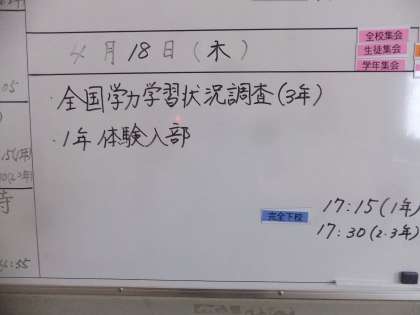 4月18日(木)
全校集会
生徒集会
学年集会
・全国学力学習状況調査(3年)
・1年 体験入部
完全下校
17:15(1年)
17:30(2.3年)